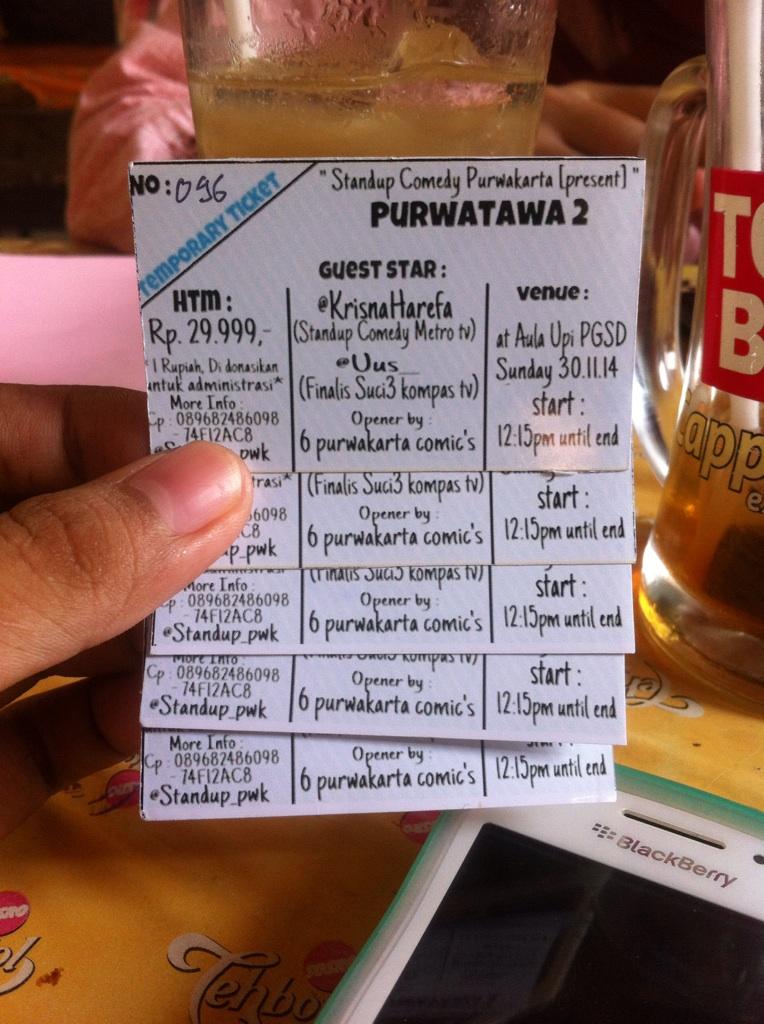 NO: 096
TEMPORARY TICKET
" Standup Comedy Purwakarta [present] "
PURWATAWA 2
HTM :
Rp. 29.999,-
*1 Rupiah, Di donasikan
untuk administrasi*
More Info :
Cp : 089682486098
- 74F12AC8
@Standup_pwk
GUEST STAR :
@KrisnaHarefa
(Standup Comedy Metro tv)
@Uus_
(Finalis Suci3 kompas tv)
Opener by :
6 purwakarta comic's
venue :
at Aula Upi PGSD
Sunday 30.11.14
start :
12:15pm until end
trasi*
6098
up_pwk
(Finalis Suci3 kompas tv)
Opener by :
6 purwakarta comic's
start :
12:15pm until end
More Info :
Cp : 089682486098
- 74F12AC8
@Standup_pwk
(Finalis Suci3 kompas tv)
Opener by :
6 purwakarta comic's
start :
12:15pm until end
More Info :
Cp : 089682486098
- 74F12AC8
@Standup_pwk
(Finalis Suci3 kompas tv)
Opener by :
6 purwakarta comic's
start :
12:15pm until end
More Info :
Cp : 089682486098
- 74F12AC8
@Standup_pwk
Opener by :
6 purwakarta comic's
start :
12:15pm until end
TO
B
capp
BlackBerry
SOSRO
Tehbo
ol